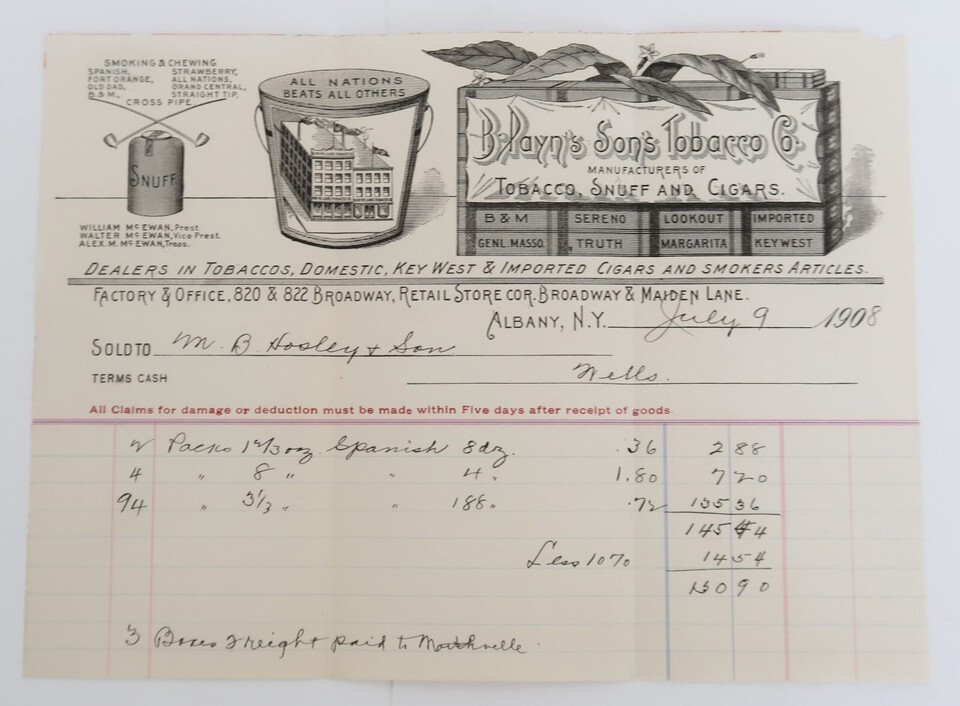 SMOKING & CHEWING
SPANISH, STRAWBERRY,
FORT ORANGE, ALL NATIONS,
OLD DAD, GRAND CENTRAL,
B & M., STRAIGHT TIP.
CROSS PIPE
SNUFF
WILLIAM MC EWAN, Prest.
WALTER MC EWAN, Vice Prest.
ALEX. M. MC EWAN, Treas.
ALL NATIONS
BEATS ALL OTHERS
B. Payn's Son's Tobacco Co.
MANUFACTURERS OF
TOBACCO, SNUFF AND CIGARS.
B & M SERENO LOOKOUT IMPORTED
GENL. MASSO. TRUTH MARGARITA KEY WEST
DEALERS IN TOBACCOS, DOMESTIC, KEY WEST & IMPORTED CIGARS AND SMOKERS ARTICLES.
FACTORY & OFFICE, 820 & 822 BROADWAY, RETAIL STORE COR. BROADWAY & MAIDEN LANE.
ALBANY, N.Y. July 9 1908
SOLD TO M. B. Hosley & Son
TERMS CASH Wells.
All Claims for damage or deduction must be made within Five days after receipt of goods.
2 Packs 1 2/3 oz. Spanish 8 dz. .36 2 88
4 " 8 " " 4 " 1.80 7 20
94 " 3 1/3 " " 188 " .72 135 36
145 44
Less 10% 14 54
130 90
3 Boxes Freight paid to